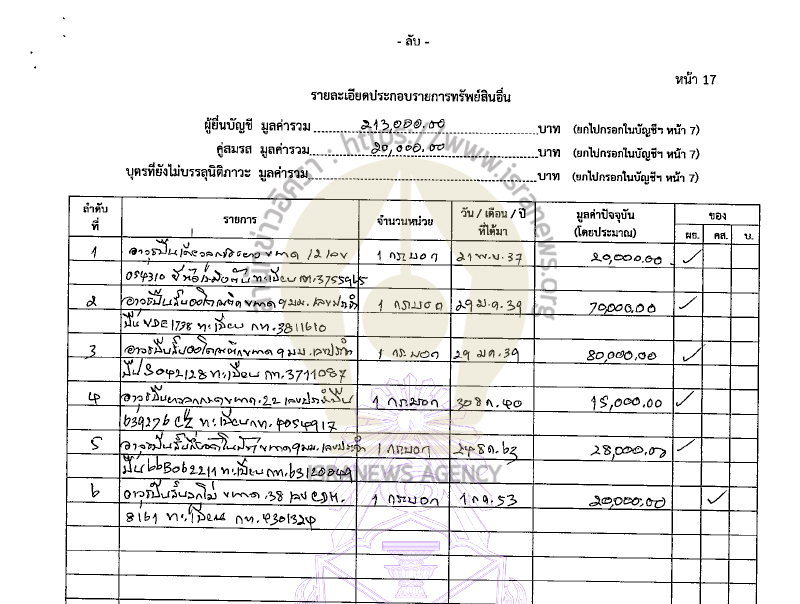 - ลับ -
หน้า 17
รายละเอียดประกอบรายการทรัพย์สินอื่น
ผู้ยื่นบัญชี มูลค่ารวม 213,000.00 บาท (ยกไปกรอกในบัญชีฯ หน้า 7)
คู่สมรส มูลค่ารวม 20,000.00 บาท (ยกไปกรอกในบัญชีฯ หน้า 7)
บุตรที่ยังไม่บรรลุนิติภาวะ มูลค่ารวม บาท (ยกไปกรอกในบัญชีฯ หน้า 7)
ลำดับที่ รายการ จำนวนหน่วย วัน / เดือน / ปี ที่ได้มา มูลค่าปัจจุบัน (โดยประมาณ) ของ
ผย. คส. บ.
1 อาวุธปืน ขนาด 12 เลข 1 กระบอก 21 พ.ย. 37 20,000.00 ✓
054310 ทะเบียน กท.3755945
2 อาวุธปืน ขนาด 9 มม. เลขประจำ 1 กระบอก 29 ม.ค. 39 70,000.00 ✓
ปืน VDE1738 ทะเบียน กท. 3811610
3 อาวุธปืน ขนาด 9 มม. เลขประจำ 1 กระบอก 29 มค. 39 80,000.00 ✓
ปืน S042128 ทะเบียน กท.3711087
4 อาวุธปืน ขนาด .22 เลขประจำปืน 1 กระบอก 30 ธค. 40 15,000.00 ✓
639276 CZ ทะเบียน กท. 4054917
5 อาวุธปืน ขนาด 9 มม. เลขประจำ 1 กระบอก 24 ธค. 63 28,000.00 ✓
ปืน 66B062211 ทะเบียน กท.63120049
6 อาวุธปืน ขนาด .38 เลข CDH. 1 กระบอก 1 กค. 53 20,000.00 ✓
8161 ทะเบียน กท.4301324
สำนักข่าวอิศรา : https://www.isranews.org
ISRANEWS AGENCY